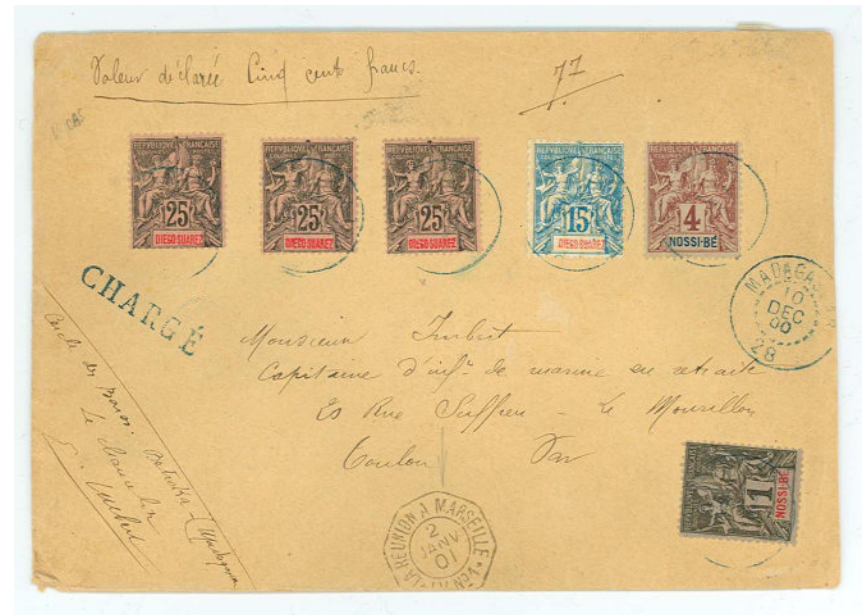 Valeur déclarée Cinq cents francs.
77
REPUBLIQUE FRANÇAISE
25
DIEGO-SUAREZ
REPUBLIQUE FRANÇAISE
25
DIEGO-SUAREZ
REPUBLIQUE FRANÇAISE
25
DIEGO-SUAREZ
REPUBLIQUE FRANÇAISE
15
DIEGO-SUAREZ
REPUBLIQUE FRANÇAISE
4
NOSSI-BÉ
CHARGÉ
MADAGASCAR
10
DEC
00
28
Monsieur Imbert
Capitaine d'infie de marine en retraite
Rue Suffren - Le Mourillon
Toulon Var
Cercle des
Le chancelier
1
NOSSI-BÉ
LA REUNION A MARSEILLE
2
JANV
01